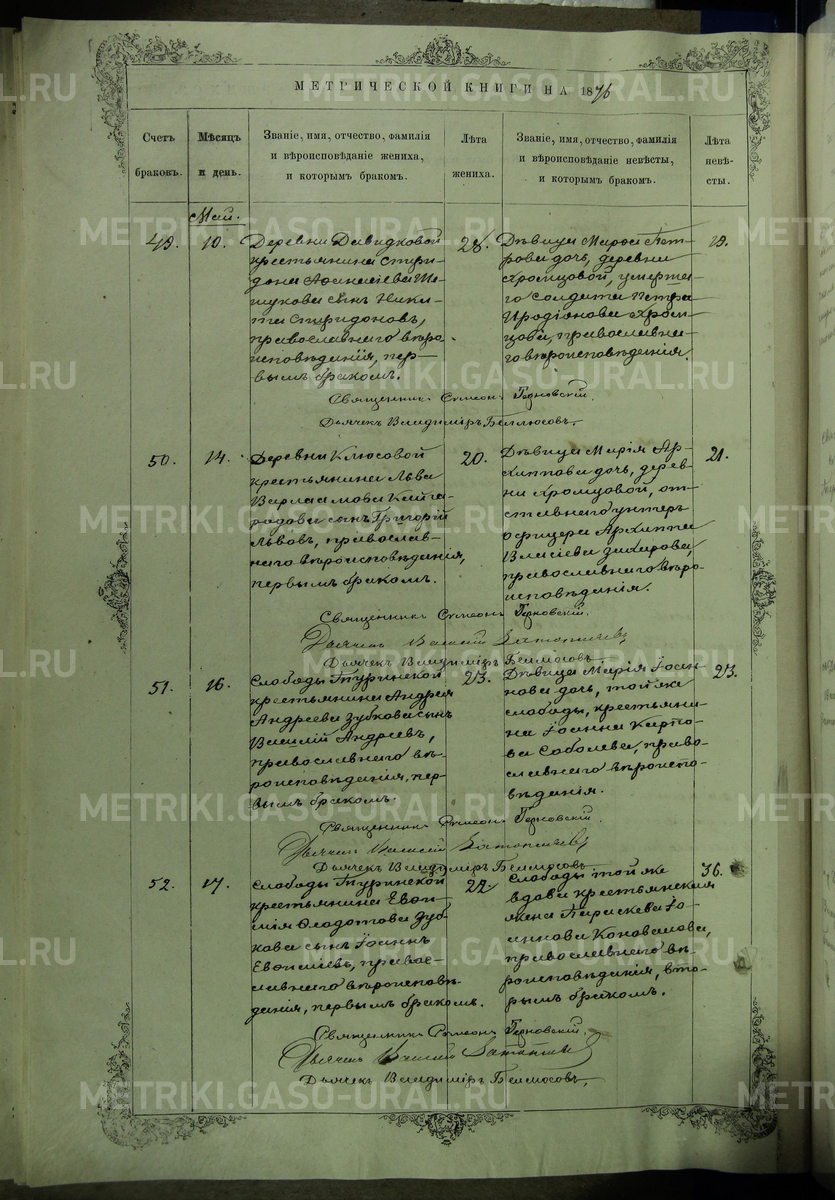 МЕТРИЧЕСКОЙ КНИГИ НА 1876
Счетъ браковъ.
Мѣсяцъ и день.
Званіе, имя, отчество, фамилія и вѣроисповѣданіе жениха, и которымъ бракомъ.
Лѣта жениха.
Званіе, имя, отчество, фамилія и вѣроисповѣданіе невѣсты, и которымъ бракомъ.
Лѣта невѣсты.
Май.
49.
10.
Деревни Давидковой
крестьянина Спири-
дона Аѳанасьева
сынъ Ники-
та Спиридоновъ,
православнаго вѣро-
исповѣданія, пер-
вымъ бракомъ.
28.
Дѣвица Марѳа Пет-
рова дочь, деревни
Хромцовой, умерша-
го солдата Петра
Иродіонова Хром-
цова, православна-
го вѣроисповѣданія.
19.
Священникъ Симеонъ
Дьячекъ Владимиръ
50.
14.
Деревни Клюсовой
крестьянина Льва
Варлаамова
сынъ Григорій
Львовъ, православ-
наго вѣроисповѣданія,
первымъ бракомъ.
20.
Дѣвица Марія Ар-
хиппова дочь, дерев-
ни Хромцовой, от-
ставнаго унтеръ
офицера Архиппа
Власіева Захарова,
православнаго вѣро-
исповѣданія.
21.
Священникъ Симеонъ
Дьячекъ Василій
Дьячекъ Владимиръ
51.
16.
Слободы Туринской
крестьянина Андрея
Андреева Зубкова сынъ
Василій Андреевъ,
православнаго вѣ-
роисповѣданія, пер-
вымъ бракомъ.
23.
Дѣвица Марія Іоан-
нова дочь, той же
слободы, крестьяни-
на Іоанна Карпо-
ва Соболева, право-
славнаго вѣроиспо-
вѣданія.
23.
Священникъ Симеонъ
Дьячекъ Василій
Дьячекъ Владимиръ
52.
17.
Слободы Туринской
крестьянина Евѳи-
мія Ѳедотова Зуб-
кова сынъ Іоаннъ
Евѳиміевъ, право-
славнаго вѣроисповѣ-
данія, первымъ бракомъ.
22
Слободы той же
вдова крестьянская
жена Параскева Іо-
аннова Коновалова,
православнаго вѣ-
роисповѣданія, вто-
рымъ бракомъ.
36.
Священникъ Симеонъ
Дьячекъ Василій
Дьячекъ Владимиръ
METRIKI.GASO-URAL.RU